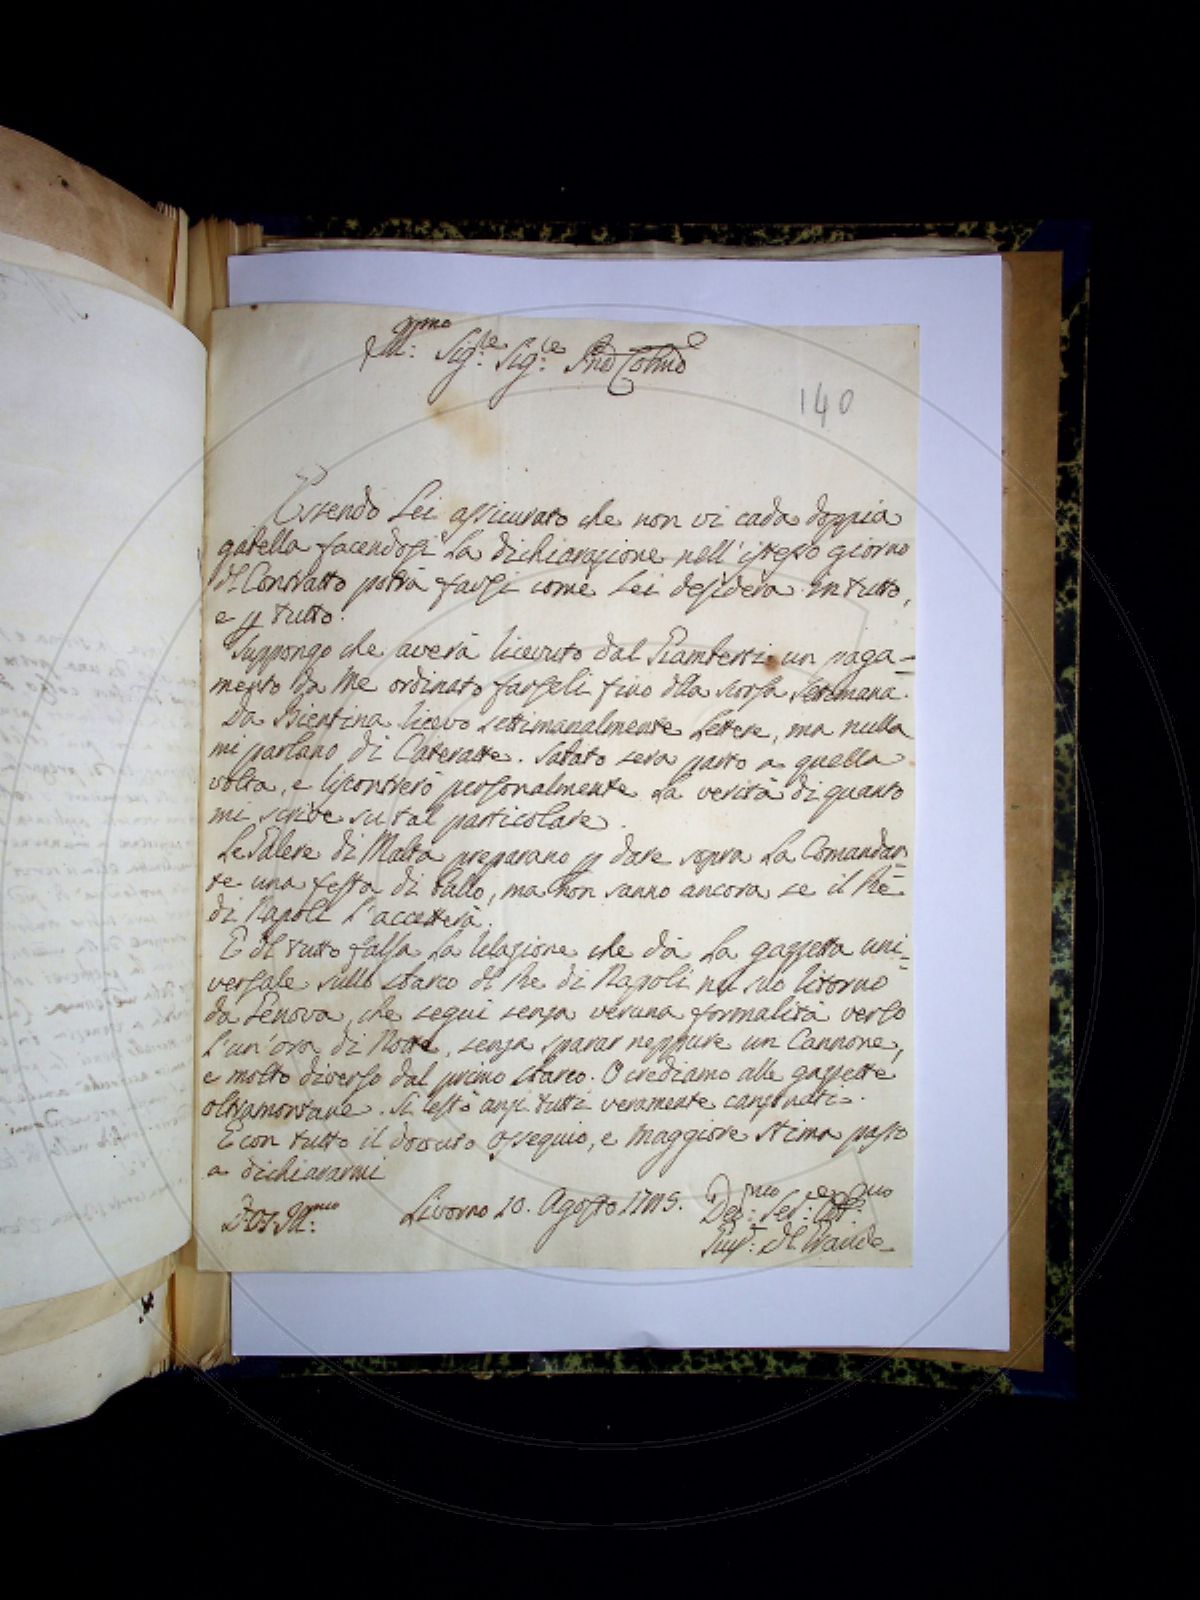 Ill:mo Sig:re Sig:re Pne Colmo
140
Essendo Lei assicurato che non vi cada doppia
gabella facendosi la dichiarazione nell'istesso giorno
del Contratto potrà farsi come Lei desidera in tutto,
e p tutto.
Suppongo che averà ricevuto dal Giambetti un paga=
mento da me ordinato farseli fino dlla scorsa settimana.
Da Bientina ricevo settimanalmente lettere, ma nulla
mi parlano di Cateratte. Sabato sera parto a quella
volta, e riscontrerò personalmente la verità di quanto
mi scrive su tal particolare.
Le Galere di Malta preparano p dare sopra la Comandan=
te una festa di ballo, ma non sanno ancora se il Rè
di Napoli l'accetterà.
È del tutto falsa la relazione che dà la gazzetta uni=
versale sullo sbarco del Re di Napoli nel suo ritorno
da Genova, che seguì senza veruna formalità verso
l'un'ora di Notte, senza sparar neppure un Cannone,
e molto diverso dal primo sbarco. O crediamo alle gazzette
oltramontane. Si restò anzi tutti veramente
E con tutto il dovuto ossequio, e maggiore stima passo
a dichiararmi
D VS Ill:ma
Livorno 10. Agosto 1785.
Dev:mo Ser:re Obb:mo
del